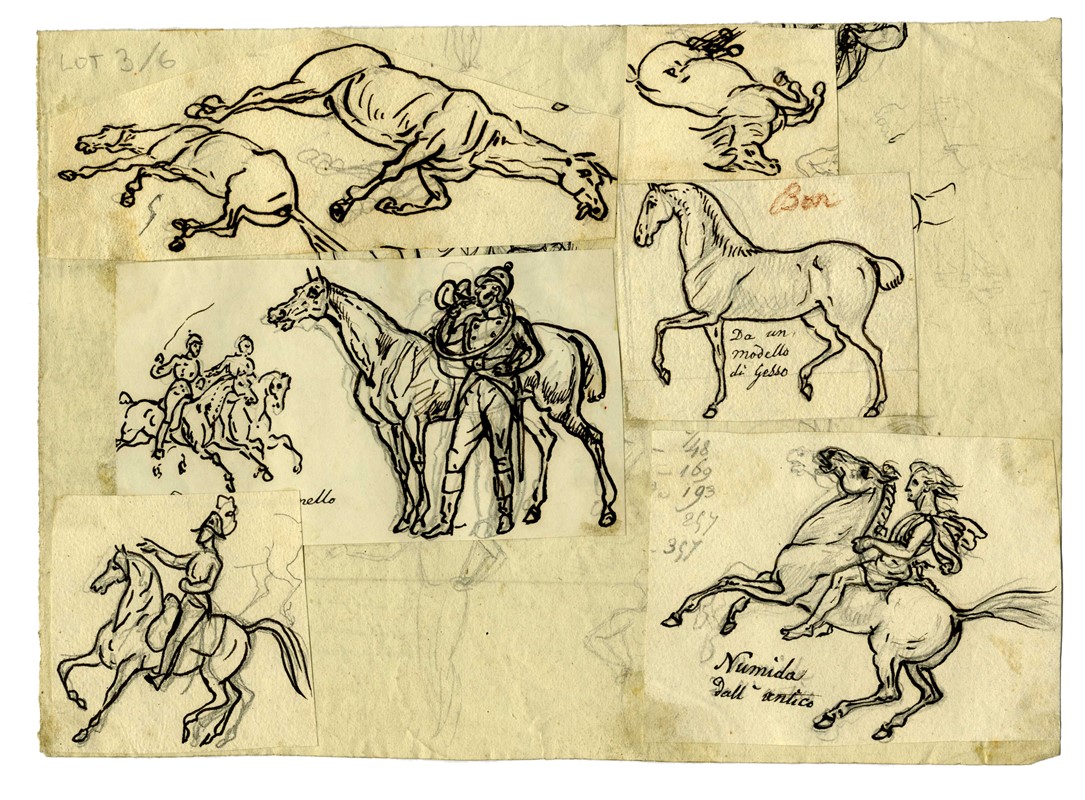 LOT 3/6
Bon
Da un
modello
di gesso
nello
148
169
193
357
Numida
dall' antico